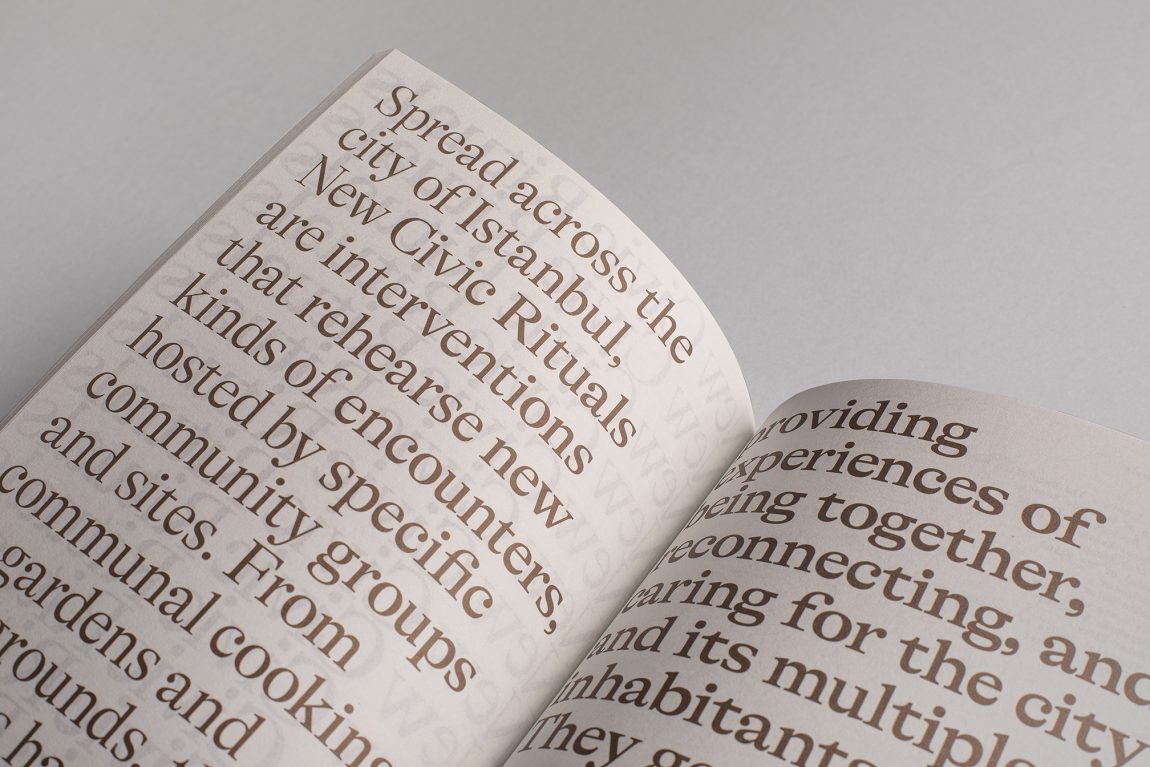 Spread across the
city of Istanbul,
New Civic Rituals
are interventions
that rehearse new
kinds of encounters,
hosted by specific
community groups
and sites. From
communal cooking
gardens and
providing
experiences of
being together,
reconnecting, and
caring for the city
and its multiple
inhabitants
They